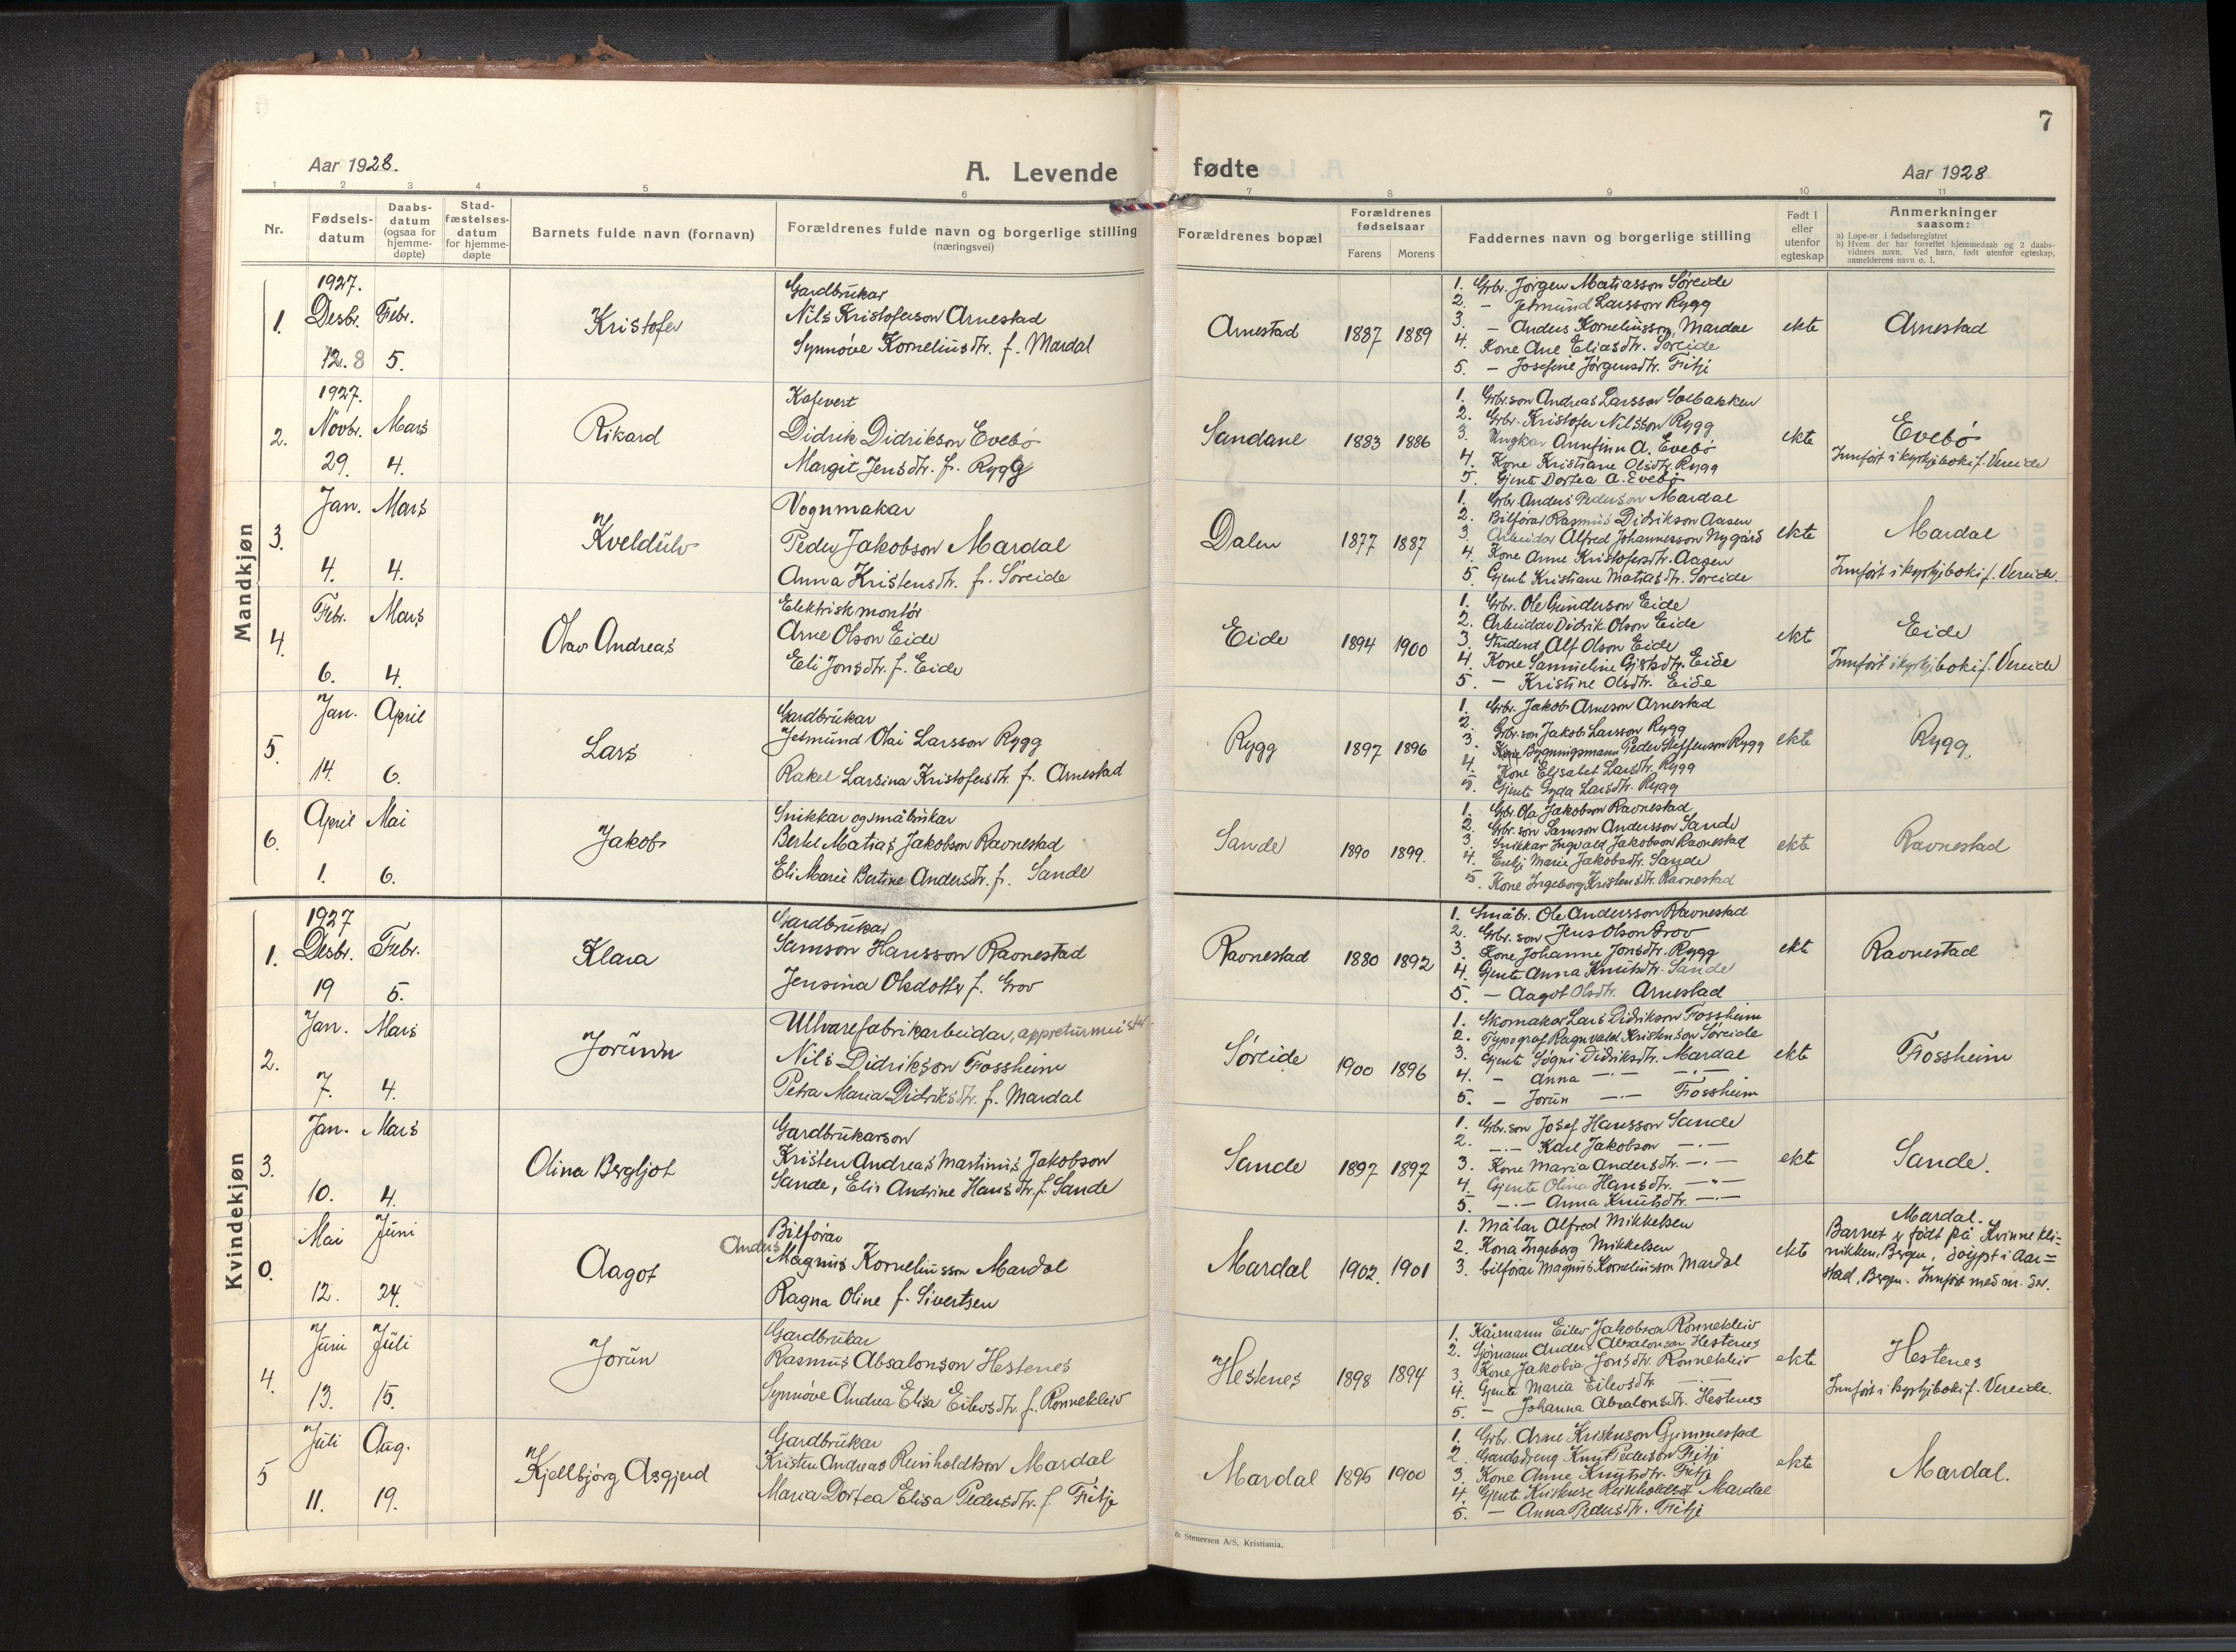 7
Aar 1928.
A. Levende
fødte
Aar 1928
1 2 3 4 5 6 7 8 9 10 11
Nr.
Fødsels-
datum
Daabs-
datum
(ogsaa for
hjemme-
døpte)
Stad-
fæstelses-
datum
for hjemme-
døpte
Barnets fulde navn (fornavn)
Forældrenes fulde navn og borgerlige stilling
(næringsvei)
Forældrenes bopæl
Forældrenes
fødselsaar
Farens Morens
Faddernes navn og borgerlige stilling
Født i
eller
utenfor
egteskap
Anmerkninger
saasom:
a) Løpe-nr i fødselsregistret
b) Hvem der har forrettet hjemmedaab og 2 daabs-
vidners navn. Ved barn, født utenfor egteskap,
anmelderens navn o. l.
Mandkjøn
1.
1927.
Desbr. Febr.
12. 8 5.
Kristofer
Gardbrukar
Nils Kristoferson Arnestad
Synnøve Korneliusdtr. f. Mardal
Arnestad
1887 1889
1. Grbr. Jørgen Matiasson Søreide
2. — Jetmund Larsson Rygg
3. — Anders Korneliusson, Mardal
4. Kone Ane Eliasdtr. Søreide
5. — Josefine Jørgensdtr. Fitje
ekte
Arnestad
2.
1927.
Novbr. Mars
29. 4.
Rikard
Kafevert
Didrik Didrikson Evebø
Margit Jensdtr. f. Rygg
Sandane
1883 1886
1. Grbr.son Andreas Larsson Solbakken
2. Grbr. Kristofer Nilsson Rygg
3. Ungkar Annfinn A. Evebø
4. Kone Kristiane Olsdtr. Rygg
5. Gjente Dortea A. Evebø
ekte
Evebø
Innført i kyrkjeboki f. Vereide
3.
Jan. Mars
4. 4.
Kveldulv
Vognmakar
Peder Jakobson Mardal
Anna Kristensdtr. f. Søreide
Dalen
1877 1887
1. Grbr. Anders Pederson Mardal
2. Bilførar Rasmus Didrikson Aasen
3. Arbeidar Alfred Johannesson Nygård
4. Kone Anne Kristofersdtr. Aasen
5. Gjente Kristiane Matiasdtr. Søreide
ekte
Mardal
Innført i kyrkjeboki f. Vereide.
4.
Febr. Mars
6. 4.
Olav Andreas
Elektrisk montør
Arne Olson Eide
Eli Jonsdtr. f. Eide
Eide
1894 1900
1. Grbr. Ole Gunderson Eide
2. Arbeidar Didrik Olson Eide
3. Student Alf Olson Eide
4. Kone Samueline Eide
5. — Kristine Olsdtr. Eide
ekt
Eide
Innført i kyrkjeboki f. Vereide
5.
Jan. April
14. 6.
Lars
Gardbrukar
Jetmund Olai Larsson Rygg
Rakel Larsina Kristofersdtr. f. Arnestad
Rygg
1897 1896
1. Grbr. Jakob Arneson Arnestad
2. Grbr.son Jakob Larsson Rygg
3. Bygningsmann Peder Steffenson Rygg
4. Kone Elisabet Larsdtr. Rygg
5. Gjente Gyda Larsdtr. Rygg
ekte
Rygg.
6.
April Mai
1. 6.
Jakob
Snikkar og småbrukar
Bertel Matias Jakobson Ravnestad
Eli Marie Bertine Andersdtr. f. Sande
Sande
1890 1899.
1. Grbr. Ola Jakobson Ravnestad
2. Grbr.son Samson Andersson Sande
3. Snikkar Ingvald Jakobson Ravnestad
4. Enkj. Marie Jakobsdtr. Sande
5. Kone Ingeborg Kristensdtr. Ravnestad
ekte
Ravnestad
Kvindekjøn
1.
1927
Desbr. Febr.
19 5.
Klara
Gardbrukar
Samson Hansson Ravnestad
Jensina Olsdotter f. Grov
Ravnestad
1880 1892
1. Småbr. Ole Andersson Ravnestad
2. Grbr. son Jens Olson Grov
3. Kone Johanne Jonsdtr. Rygg
4. Gjente Anna Knutsdtr. Sande
5. — Aagot Olsdtr. Arnestad
ekt
Ravnestad
2.
Jan. Mars
7. 4.
Jorunn
Ullvarefabrikarbeidar, appreturmeister
Nils Didrikson Fossheim
Petra Maria Didriksdtr. f. Mardal
Søreide
1900 1896
1. Skomakar Lars Didrikson Fossheim
2. Typograf Ragnvald Kristenson Søreide
3. Gjente Sögni Didriksdtr. Mardal
4. — Anna —·— —·—
5. — Jorun —·— Fossheim
ekte
Fossheim
3.
Jan. Mars
10. 4.
Olina Bergljot
Gardbrukarson
Kristen Andreas Martinus Jakobson
Sande, Elis Andrine Hansdtr. f. Sande
Sande
1897 1897
1. Grbr.son Josef Hansson Sande
2. —·— Karl Jakobson —·—
3. Kone Maria Andersdtr. —·—
4. Gjente Olina Hansdtr. —·—
5. —·— Anna Knutsdtr. —·—
ekte
Sande.
0.
Mai Juni
12. 24.
Aagot
Bilførar
Anders
Magnus Korneliusson Mardal
Ragna Oline f. Sivertsen
Mardal
1902. 1901
1. Målar Alfred Mikkelsen
2. Kona Ingeborg Mikkelsen
3. bilførar Magnus Korneliusson Mardal
ekt
Mardal.
Barnet er født på Kvinnekli=
nikken, Bergen, døypt i Aar=
stad, Bergen. Innført med nr. der.
4.
Juni Juli
13. 15.
Jorun
Gardbrukar
Rasmus Absalonson Hestenes
Synnøve Andrea Elisa Eilevsdtr. f. Rønnekleiv
Hestenes
1898 1894
1. Kårmann Eilev Jakobson Rønnekleiv
2. Anders Absalonson Hestenes
3. Kone Jakobia Jonsdtr. Rønnekleiv
4. Gjente Maria Eilevsdtr. —·—
5. — Johanna Absalonsdtr. Hestenes
ekte
Hestenes
Innført i kyrkjeboki f. Vereide.
5
Juli Aug.
11. 19.
Kjellbjørg Asgjerd
Gardbrukar
Kristen Andreas Reinholdtson Mardal
Maria Dortea Elisa Pedersdtr. f. Fitje
Mardal
1895 1900
1. Grbr. Arne Kristenson Gjemmestad
2. Gardsdreng Knut Pederson Fitje
3. Kone Anne Knutsdtr. Fitje
4. Gjente Kristense Reinholdtsd. Mardal
5. — Anna Pedersdtr. Fitje
ekte
Mardal.
& Stenersen A/S, Kristiania.